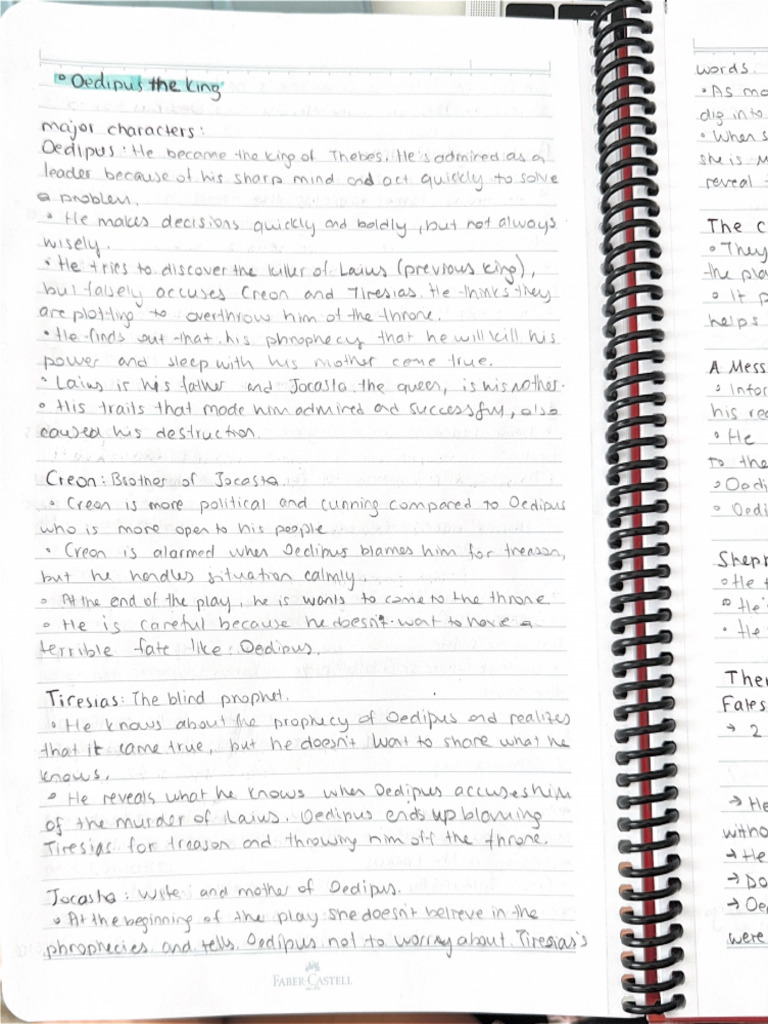 ° Oedipus the King
major characters:
Oedipus: He became the king of Thebes. He's admired as a
leader because of his sharp mind and act quickly to solve
a problem.
• He makes decisions quickly and boldly, but not always
wisely.
• He tries to discover the killer of Laius (previous king),
but falsely accuses Creon and Tiresias. He thinks they
are plotting to overthrow him of the throne.
• He finds out that his phrophecy that he will kill his
power and sleep with his mother come true.
• Laius is his father and Jocasta the queen, is his mother.
• His traits that made him admired and successful, also
caused his destruction.
Creon: Brother of Jocasta
• Creon is more political and cunning compared to Oedipus
who is more open to his people
• Creon is alarmed when Oedipus blames him for treason,
but he handles situation calmly.
• At the end of the play, he is wants to come to the throne
• He is careful because he doesn't want to have a
terrible fate like Oedipus.
Tiresias: The blind prophet.
• He knows about the prophecy of Oedipus and realizes
that it came true, but he doesn't want to share what he
knows.
• He reveals what he knows when Oedipus accuses him
of the murder of Laius. Oedipus ends up blaming
Tiresias for treason and throwing him off the throne.
Jocasta: Wife and mother of Oedipus.
• At the beginning of the play she doesn't believe in the
phrophecies and tells Oedipus not to worry about Tiresias's
FABER-CASTELL
words.
• As mo
dig into
• When s
she is m
reveal
The C
° They
the pla
° It p
helps
A Mess
° Infor
his rea
• He
to the
° Oedi
° Oedi
Shepr
° He t
° He'
• He
Ther
Fates
→ 2
→ He
witho
→ He
→ Do
→ Oe
were